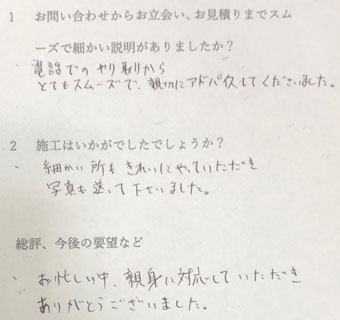 1 お問い合わせからお立会い、お見積りまでスム
ーズで細かい説明がありましたか？
・電話でのやり取りから
とてもスムーズで、親切にアドバイスしてくださいました。
2 施工はいかがでしたでしょうか？
・細かい所もきれいにやっていただき
写真も送って下さいました。
総評、今後の要望など
・お忙しい中、親身に対応していただき
ありがとうございました。